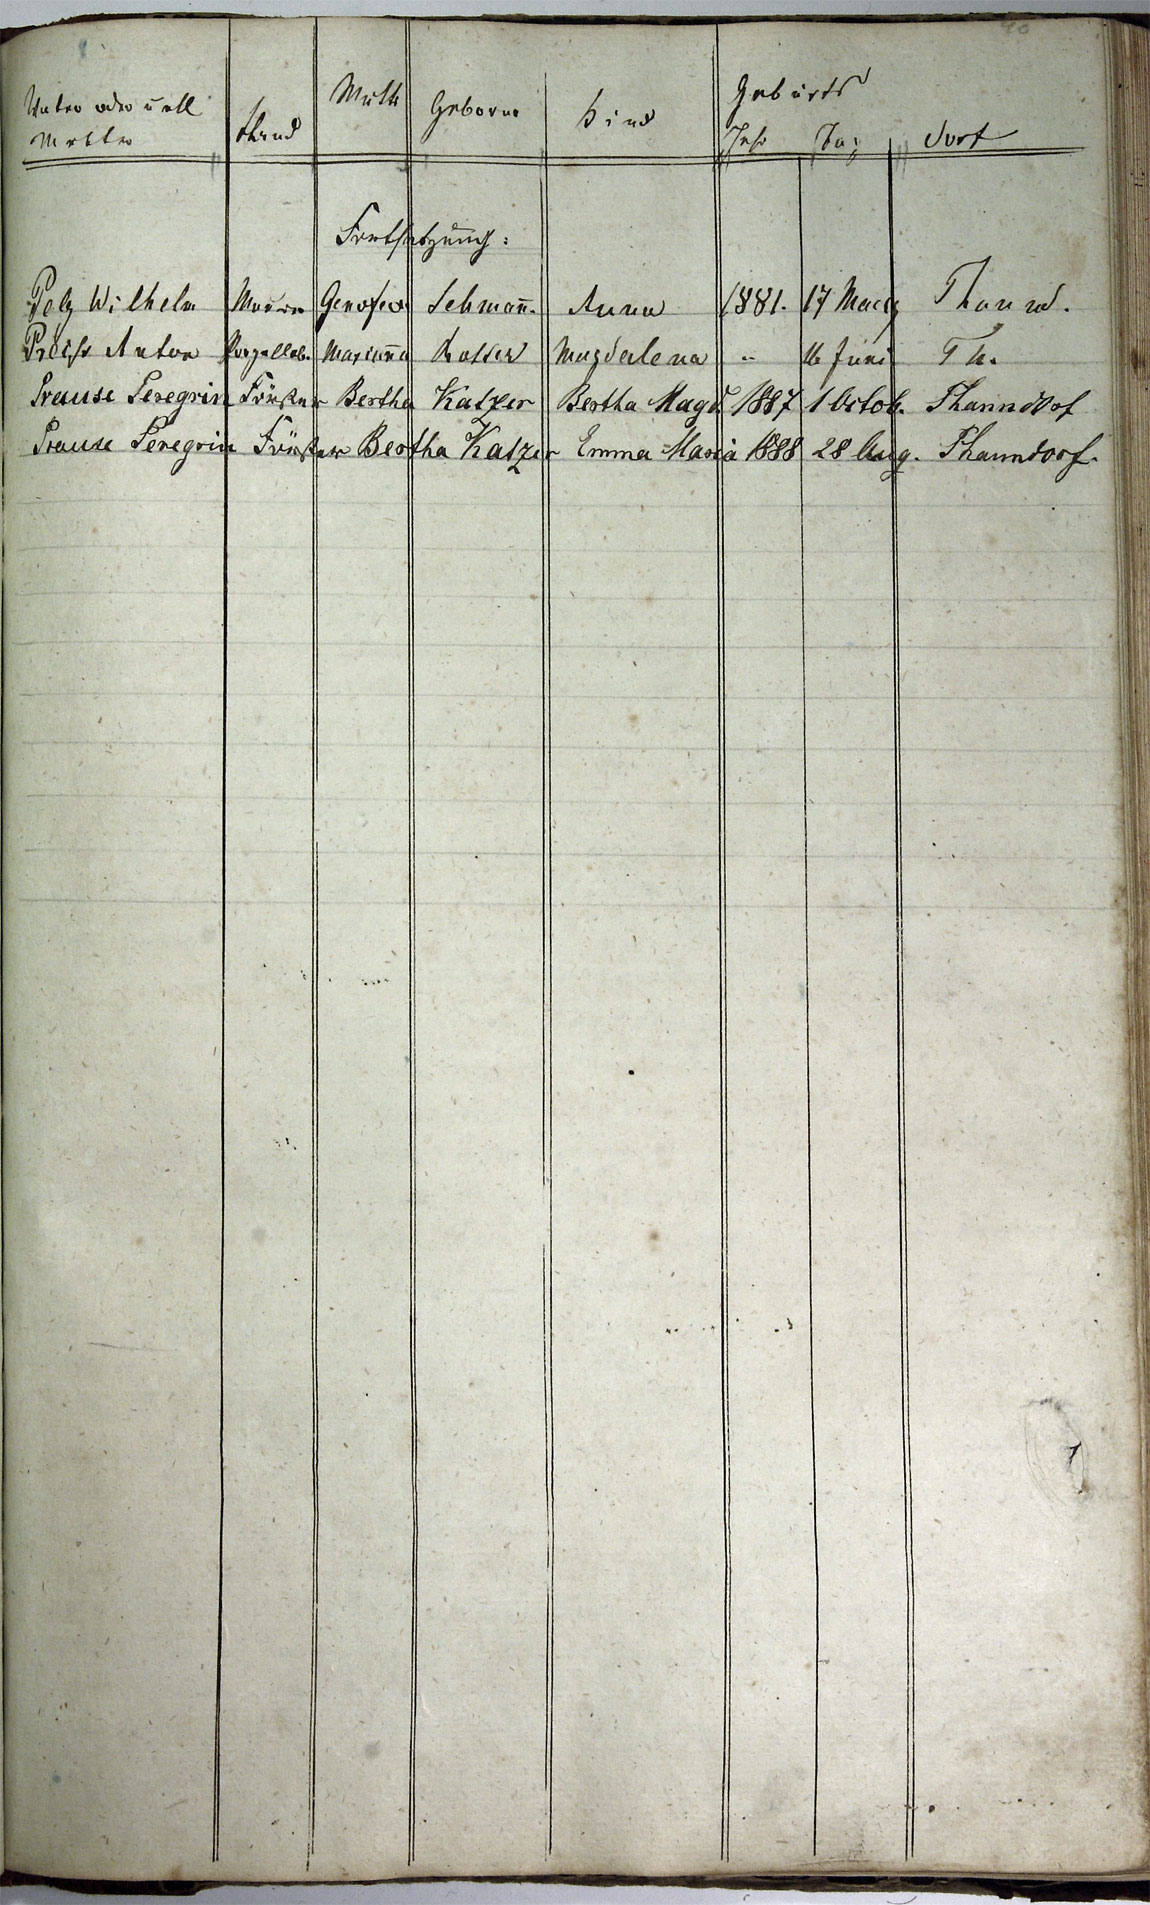 Vater oder unehl Stand Mutt Geborne Kind Geburts
Mutter Jahr Tag Dorf
Fortsetzung:
Pelz Wilhelm Maurer Genofeva Lehmann. Anna 1881. 17 Maerz Thannd.
Preiss Anton Marianna Magdalena " 16 Juni Th.
Prause Peregrin Förster Bertha Katzer Bertha Magd 1887 1 Octob. Thanndorf
Prause Peregrin Förster Bertha Katzer Emma Maria 1888 28 Aug. Thanndorf.